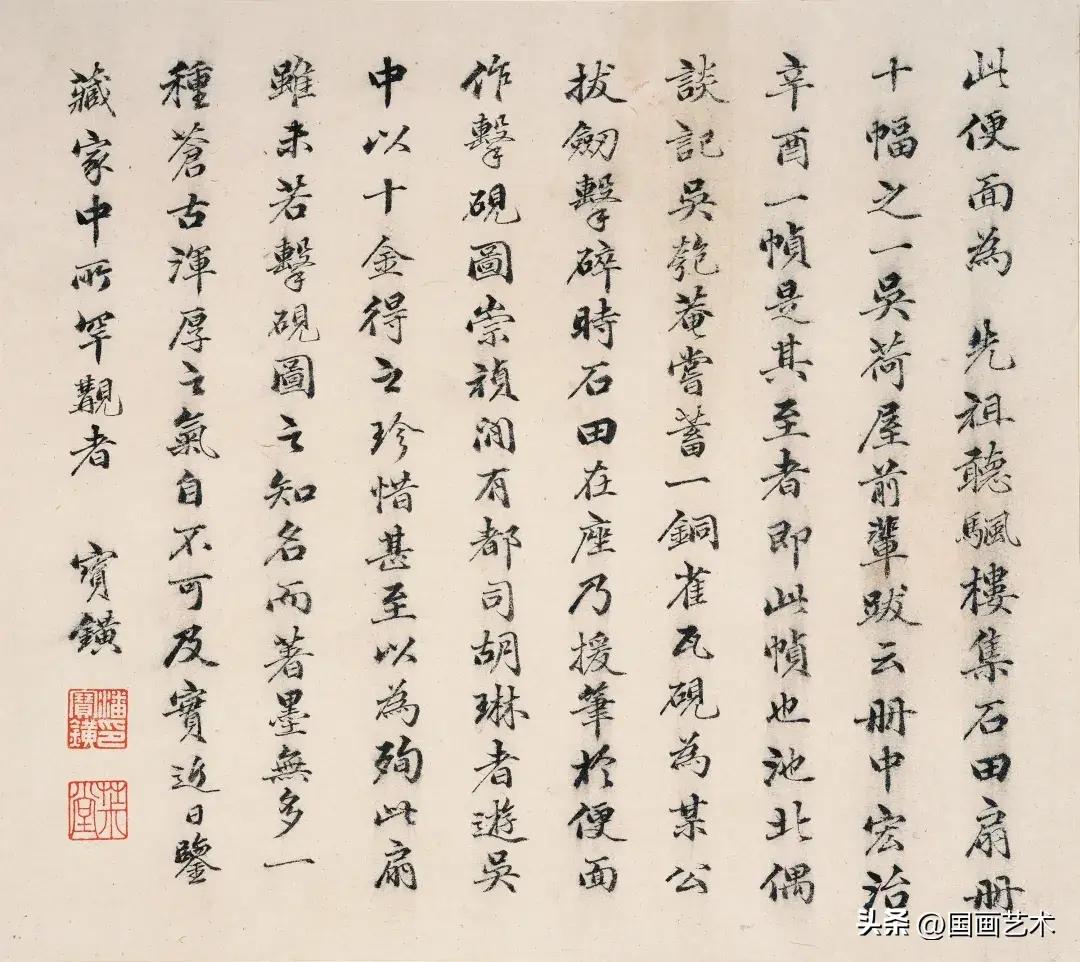 此便面為 先祖聽颿樓集石田扇冊
十幅之一吳荷屋前輩跋云冊中宏治
辛酉一幀是其至者即此幀也池北偶
談記吳匏菴嘗蓄一銅雀瓦硯為某公
拔劒擊碎時石田在座乃援筆於便面
作擊硯圖崇禎間有都司胡琳者遊吳
中以十金得之珍惜甚至以為殉此扇
雖未若擊硯圖之知名而著墨無多一
種蒼古渾厚之氣自不可及實近日鑒
藏家中所罕覯者 寶鐄
潘寶鐄印
棻堂
头条 @国画艺术